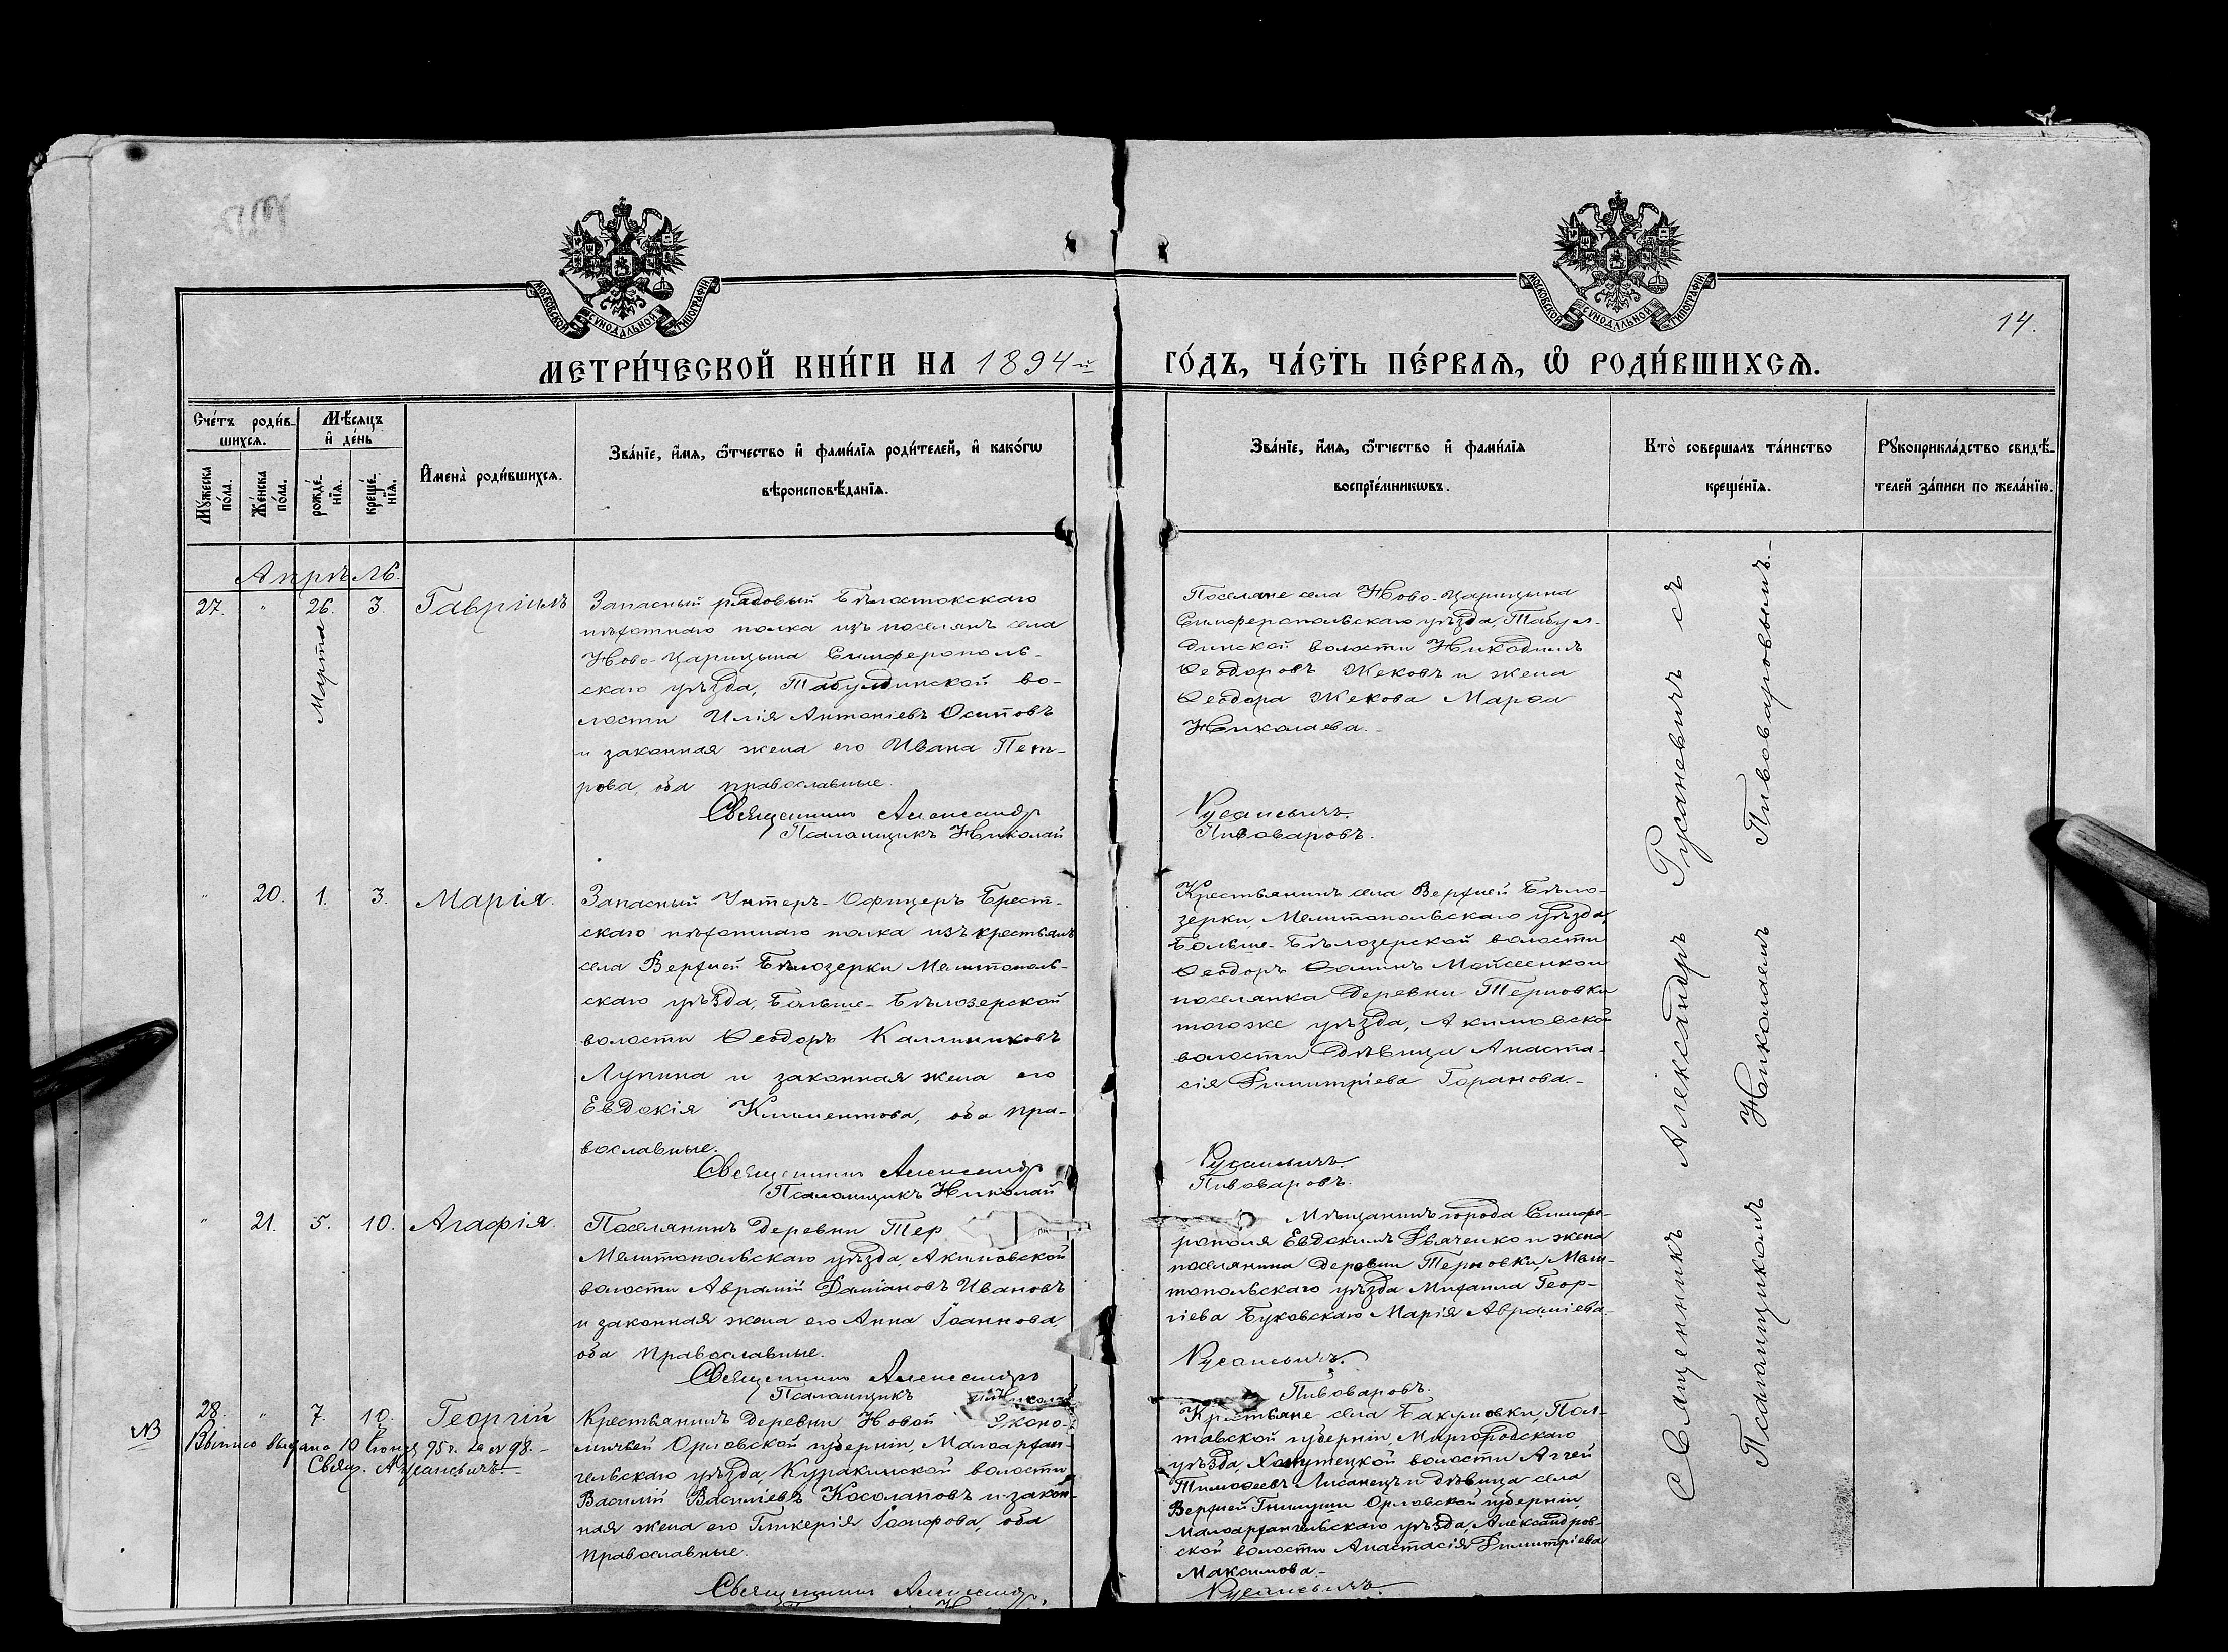 МОСКОВСКОЙ СѴНОДАЛЬНОЙ ТИПОГРАФІИ
МОСКОВСКОЙ СѴНОДАЛЬНОЙ ТИПОГРАФІИ
14.
МЕТРИ́ЧЕСКОЙ КНИ́ГИ НА 1894-й ГО́ДЪ, ЧА́СТЬ ПЕ́РВАѦ, Ѡ҆ РОДИ́ВШИХСѦ.
Сче́тъ роди́в-
шихсѧ.
Мѣ́сѧцъ
и҆ де́нь
Мꙋ́жеска
по́ла.
Же́нска
по́ла.
рожде́-
нїѧ.
креще́-
нїѧ.
И҆мена̀ роди́вшихсѧ.
Зва́нїе, и҆́мѧ, ѻ҆́тчество и҆ фами́лїѧ роди́телей, и҆ како́гѡ
вѣроисповѣ́данїѧ.
Зва́нїе, и҆́мѧ, ѻ҆́тчество и҆ фами́лїѧ
воспрїе́мникѡвъ.
Кто̀ соверша́лъ та́инство
креще́нїѧ.
Рꙋкоприкла́дство свидѣ́-
телей за́писи по жела́нїю.
Апрѣль.
27. " 26. 3. Гавріилъ
Марта
Запасный рядовый Бѣлостокскаго
пѣхотнаго полка изъ поселянъ села
Ново-Царицына Симферополь-
скаго уѣзда, Табулдинской во-
лости Илія Антоніевъ Осиповъ
и законная жена его Ивана Пет-
рова, оба православные.
Священникъ Александр
Псаломщикъ Николай
Поселяне села Ново-Царицына
Симферопольскаго уѣзда, Табул-
динской волости Никодимъ
Ѳеодоровъ Жековъ и жена
Ѳеодора Жекова Марѳа
Николаева.-
Русаневичъ.
Пивоваровъ.
" 20. 1. 3. Марія.
Запасный Унтеръ-Офицеръ Брест-
скаго пѣхотнаго полка изъ крестьянъ
села Верхней Бѣлозерки Мелитополь-
скаго уѣзда, Больше-Бѣлозерской
волости Ѳеодоръ Каллиниковъ
Лупина и законная жена его
Евдокія Климентова, оба пра-
вославные.
Священникъ Александр
Псаломщикъ Николай
Крестьянинъ села Верхней Бѣло-
зерки, Мелитопольскаго уѣзда,
Больше-Бѣлозерской волости
Ѳеодоръ Ѳоминъ Мойсеенко и
поселянка деревни Терновки
тогоже уѣзда, Акимовской
волости Дѣвица Анаста-
сія Димитріева Горанова.-
Русаневичъ.
Пивоваровъ.
" 21. 5. 10. Агафія.
Поселянинъ деревни Тер
Мелитопольскаго уѣзда, Акимовской
волости Аврамій Даміановъ Ивановъ
и законная жена его Анна Іоаннова,
оба православные.
Священникъ Александръ
Псаломщикъ Николай
Мѣщанинъ города Симфе-
рополя Евдокимъ Дяченко и жена
поселянина деревни Терновки, Мели-
топольскаго уѣзда Михаила Геор-
гіева Буковскаго Марія Авраміева.
Русаневичъ.
Пивоваровъ.
NB
28. " 7. 10. Георгій
Выпись выдана 10 Іюня 95 г. за № 98.-
Свящ. А Русаневичъ.-
Крестьянинъ деревни Новой Эконо-
мичьей Орловской губерніи, Малоархан-
гельскаго уѣзда, Куракинской волости
Василій Василіевъ Косолаповъ и закон-
ная жена его Гликерія Іосифова, оба
православные.
Священникъ Александр
Крестьяне села Бакумовки, Пол-
тавской губерніи, Миргородскаго
уѣзда, Хомутецкой волости Аггей
Тимоѳеевъ Лисанецъ и дѣвица села
Верхней Гнилуши Орловской губерніи,
Малоархангельскаго уѣзда, Александров-
ской волости Анастасія Димитріева
Максимова.-
Русаневичъ.
Священникъ Александръ Русаневичъ съ
Псаломщикомъ Николаемъ Пивоваровымъ.-